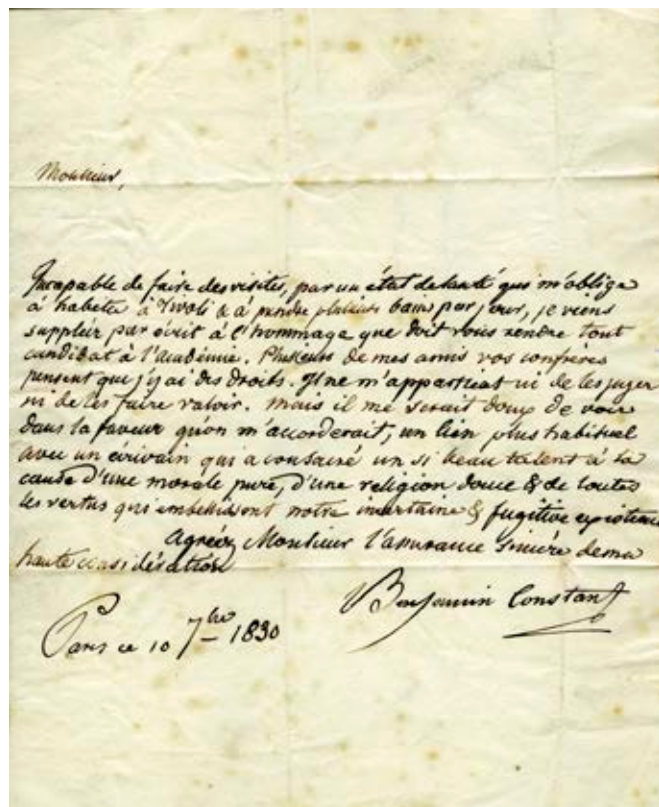 Monsieur,
Incapable de faire des visites, par un état de santé qui m'oblige
à habiter à Tivoli & à prendre plusieurs bains par jour, je viens
suppléer par écrit à l'hommage que doit vous rendre tout
candidat à l'académie. Plusieurs de mes amis vos confrères
pensent que j'y ai des droits. Il ne m'appartient ni de les juger
ni de les faire valoir. mais il me serait doux de voir
dans la faveur qu'on m'accorderait, un lien plus habituel
avec un écrivain qui a consacré un si beau talent à la
cause d'une morale pure, d'une religion douce & de toutes
les vertus qui embellissent notre incertaine & fugitive existence
Agréez Monsieur l'assurance sincère de ma
haute considération
Benjamin Constant
Paris ce 10 7bre 1830